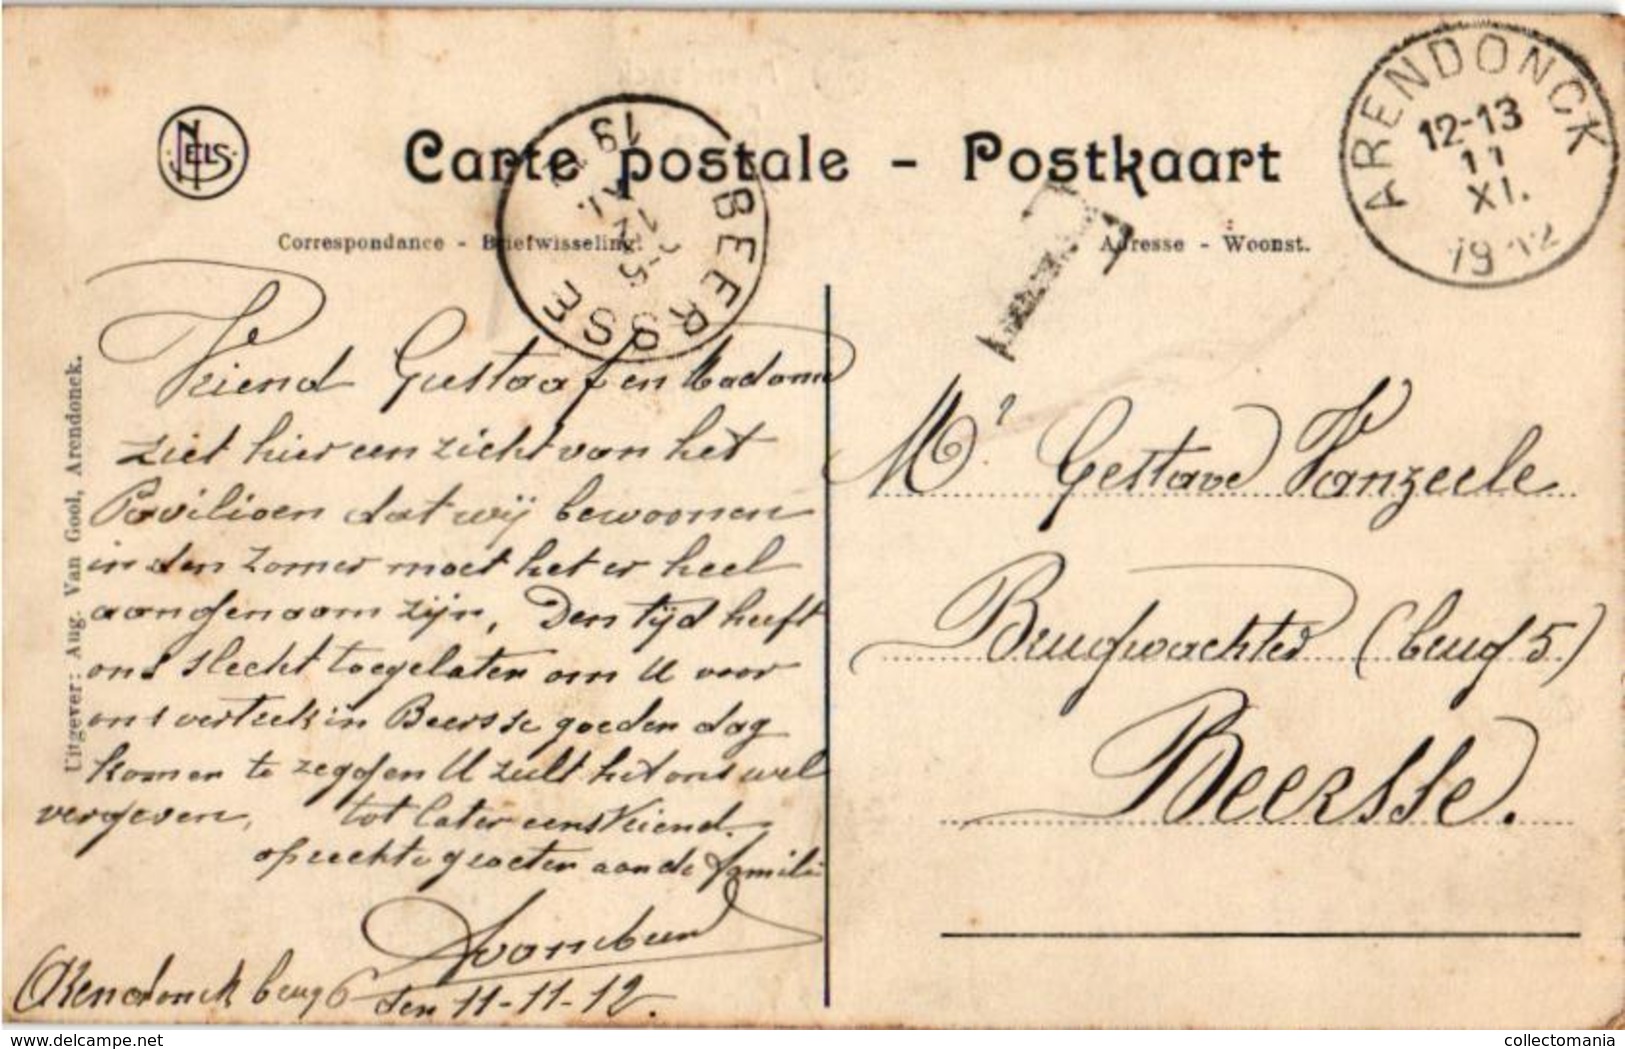 NELS
Carte postale - Postkaart
Correspondance - Briefwisseling.
Adresse - Woonst.
ARENDONCK
12-13
11
XI.
1912
BEERSSE
19
T
Uitgever: Aug. Van Gool, Arendonck.
Vriend Gustaaf en Madame
ziet hier een zicht van het
Pavilioen dat wij bewoonen
in den zomer moet het er heel
aangenaam zijn, Den tijd heeft
ons slecht toegelaten om U voor
ons vertrek in Beersse goeden dag
komen te zeggen U zult het ons wel
vergeven, tot later eens Vriend.
oprechte groeten aan de famili
Arendonck brug 6 den 11-11-12.
Mr Gustave Vanzeele
Brugwachter (brug 5)
Beersse.
delcampe.net
collectomania